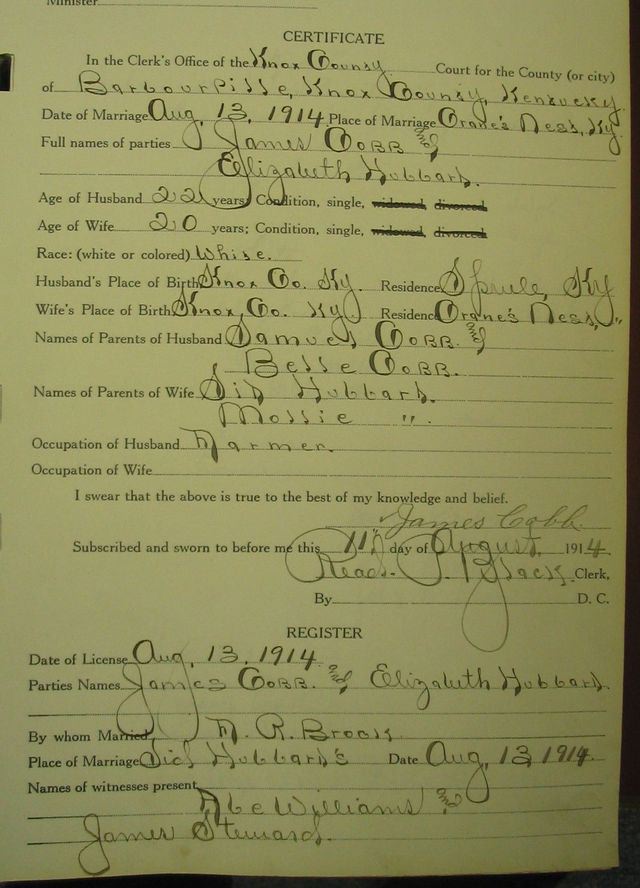 Minister
CERTIFICATE
In the Clerk's Office of the Knox County Court for the County (or city)
of Barbourville, Knox County, Kentucky.
Date of Marriage Aug, 13, 1914 Place of Marriage Crane's Nest, Ky.
Full names of parties James Cobb &
Elizabeth Hubbard.
Age of Husband 22 years; Condition, single, widowed, divorced
Age of Wife 20 years; Condition, single, widowed, divorced
Race: (white or colored) White.
Husband's Place of Birth Knox Co. Ky. Residence Sprule, Ky
Wife's Place of Birth Knox, Co. Ky. Residence Crane's Nest, "
Names of Parents of Husband Samuel Cobb. &
Belle Cobb.
Names of Parents of Wife Hubbard.
Mollie ".
Occupation of Husband Farmer.
Occupation of Wife
I swear that the above is true to the best of my knowledge and belief.
James Cobb
Subscribed and sworn to before me this 11" day of August, 1914.
Read P. Black Clerk,
By D. C.
REGISTER
Date of License Aug, 13, 1914
Parties Names James Cobb. & Elizabeth Hubbard.
By whom Married, R. Brock
Place of Marriage Hubbard's Date Aug, 13, 1914.
Names of witnesses present,
Abe Williams &
James Steward.